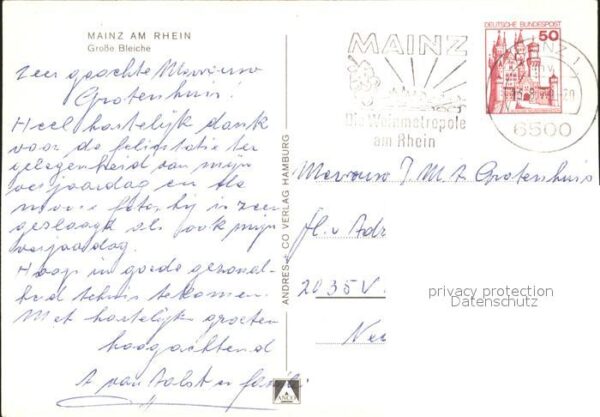 MAINZ AM RHEIN
Große Bleiche
Zeer geachte Mevrouw
Grotenhuis.
Heel hartelijk dank
voor de felicitatie ter
gelegenheid van mijn
verjaardag en de
mooie foto, hij is zeer
geslaagd als ook mijn
verjaardag.
Hoop in goede gezond-
heid te komen.
Met hartelijke groeten
hoogachtend
A van Aalst en
ANDRES + CO VERLAG HAMBURG
ANCO
MAINZ
Die Weinmetropole
am Rhein
DEUTSCHE BUNDESPOST
50
MAINZ 1
6500
Mevrouw J. M. A. Grotenhuis
H. v Adr
2035 V.
Ne
privacy protection
Datenschutz